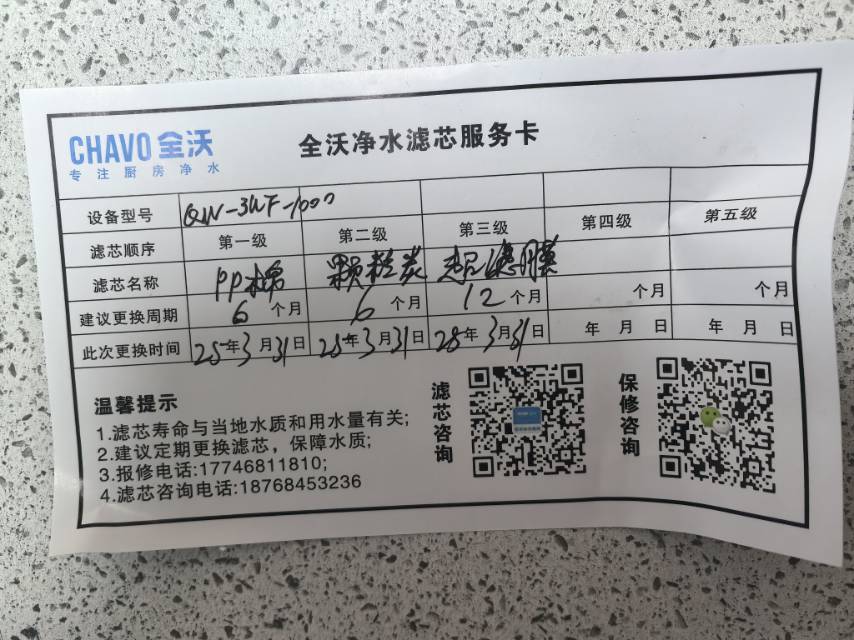 CHAVO 全沃
专注厨房净水
全沃净水滤芯服务卡
设备型号 QW-3UF-1000
滤芯顺序 第一级 第二级 第三级 第四级 第五级
滤芯名称 PP棉 颗粒炭 超滤膜
建议更换周期 6个月 6个月 12个月 个月 个月
此次更换时间 25年3月31日 25年3月31日 25年3月31日 年 月 日 年 月 日
温馨提示
1.滤芯寿命与当地水质和用水量有关;
2.建议定期更换滤芯，保障水质;
3.报修电话:17746811810;
4.滤芯咨询电话:18768453236
滤芯咨询
保修咨询